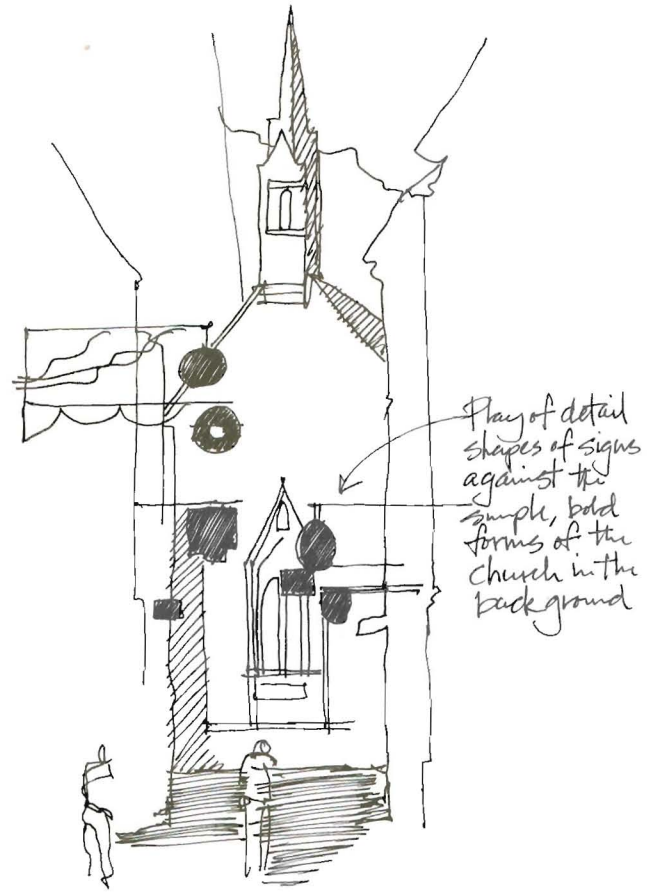 Play of detail
shapes of signs
against the
simple, bold
forms of the
church in the
background